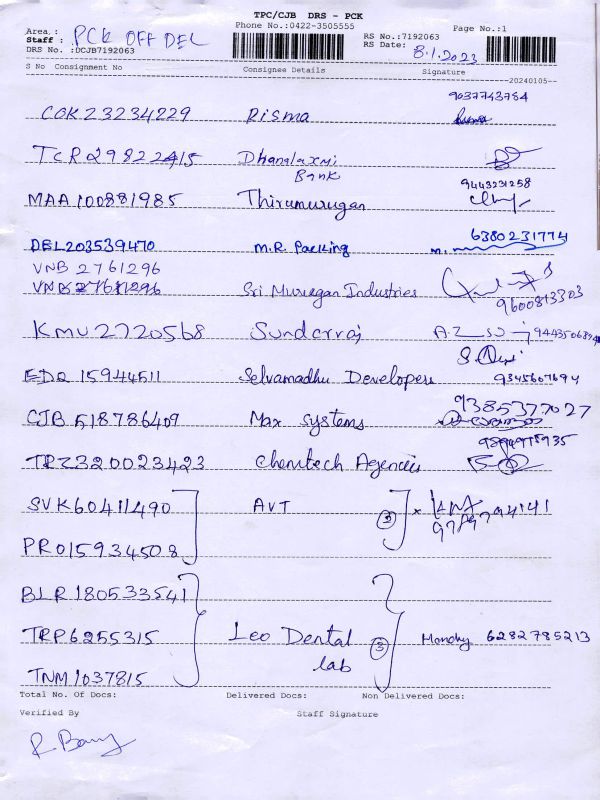 TPC/CJB DRS - PCK
Phone No.:0422-3505555
Area :
Staff : PCK OFF DEL
DRS No. :DCJB7192063
RS No.:7192063
RS Date: 8.1.2023
Page No.:1
S No Consignment No Consignee Details Signature
20240105
COK23234229 Risma 9037743754
TCR29822415 Dhanalaxmi Bank
MAA100881985 Thirumurugan 9443231258
DEL203539470 M.R. Packing 6380231774
VNB 2761296
Sri Murugan Industries 9600813303
KMU2720568 Sundarraj
EDQ 15944511 Selvamadhu Developers 9345607694
CJB 518786409 Max Systems 9385377027
TRZ320023423 Chemtech Agencies
SVK60411490 AVT 2
PRO15934508
BLR180533541
TRP6255315 Leo Dental lab 3 6282785213
TNM1037815
Total No. Of Docs: Delivered Docs: Non Delivered Docs:
Verified By Staff Signature